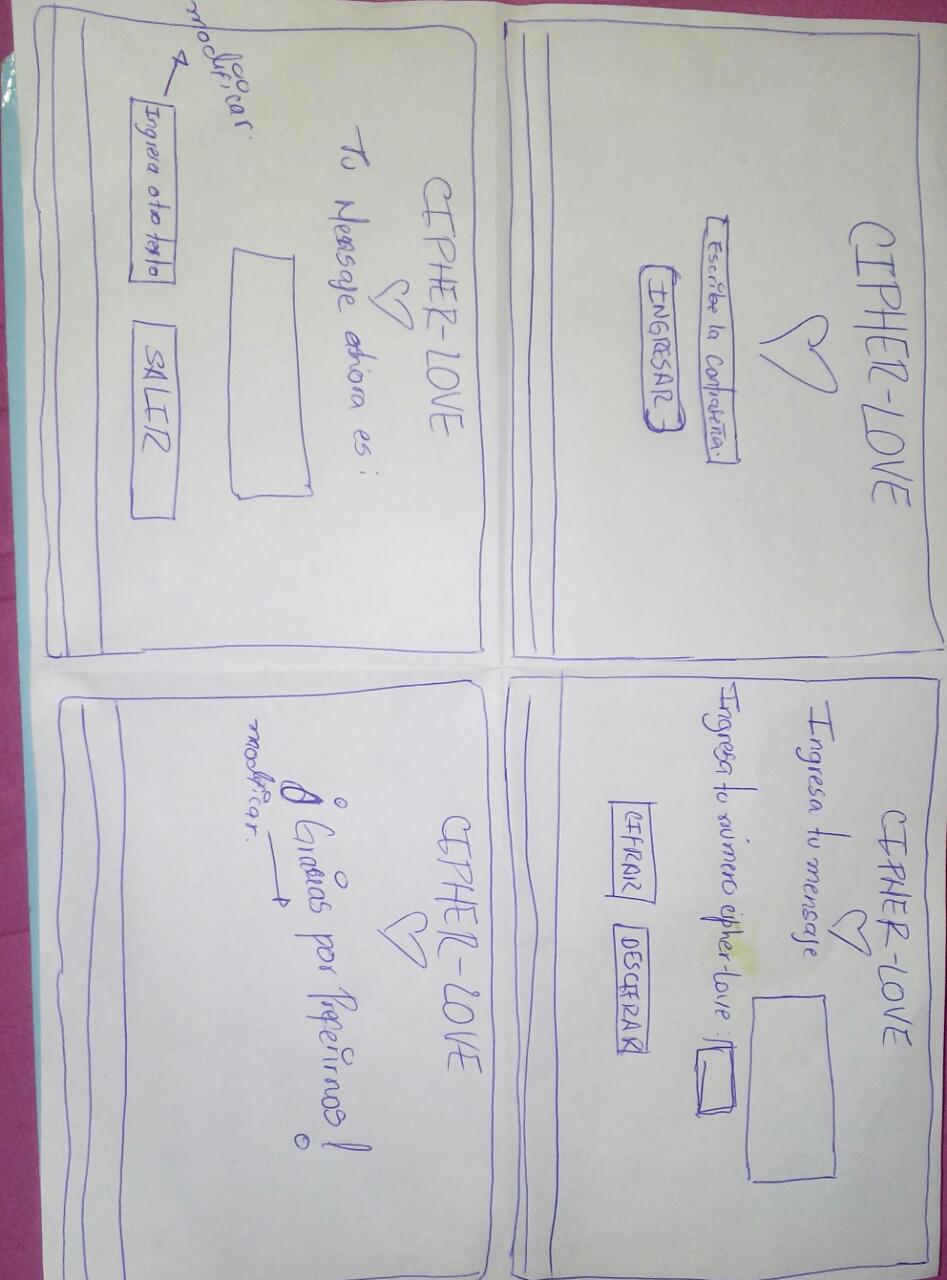 CIPHER-LOVE
Escribe la Contraseña.
INGRESAR
CIPHER-LOVE
Ingresa tu mensaje
Ingresa tu número cipher-love :
CIFRAR
DESCIFRAR
CIPHER-LOVE
Tu Mensaje ahora es:
modificar.
Ingresa otro texto
SALIR
CIPHER-LOVE
¡Gracias por Preferirnos!
modificar.